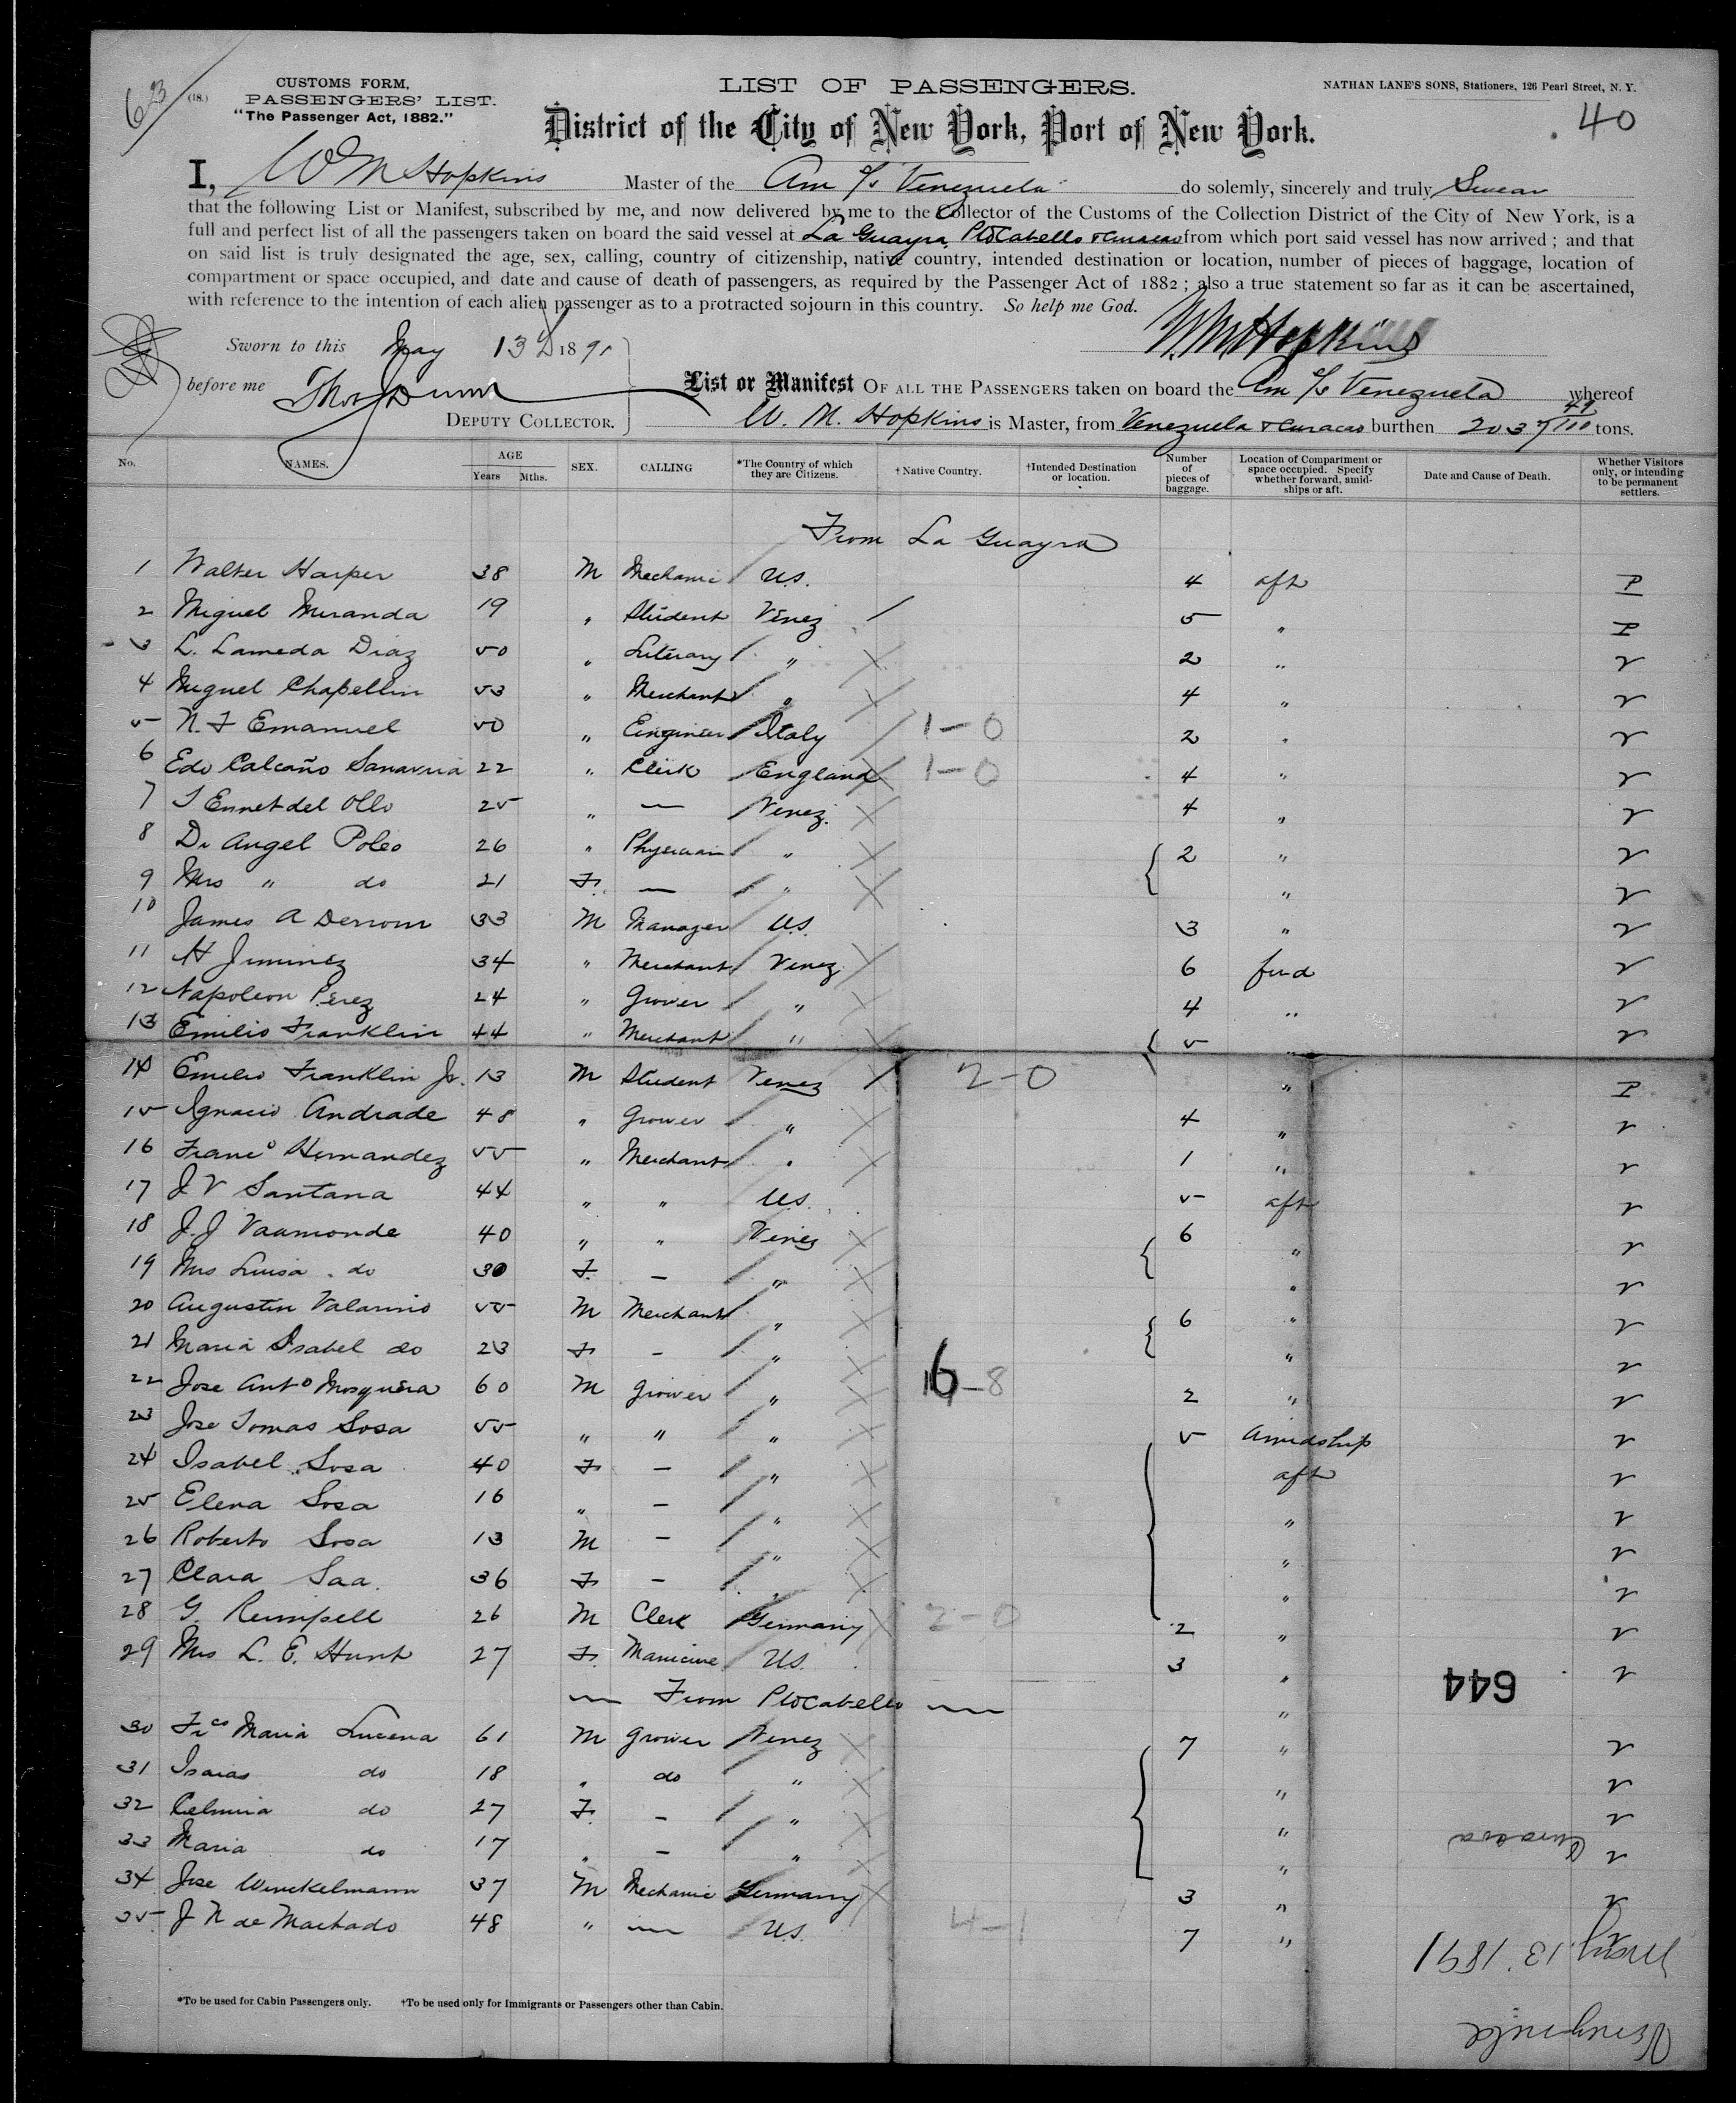 63
(18.)
CUSTOMS FORM,
PASSENGERS' LIST.
"The Passenger Act, 1882."
LIST OF PASSENGERS.
NATHAN LANE'S SONS, Stationers, 126 Pearl Street, N. Y.
40
District of the City of New York, Port of New York.
I, W M Hopkins Master of the Am S/s Venezuela do solemnly, sincerely and truly Swear
that the following List or Manifest, subscribed by me, and now delivered by me to the Collector of the Customs of the Collection District of the City of New York, is a
full and perfect list of all the passengers taken on board the said vessel at La Guayra, Pto Cabello & Curacao from which port said vessel has now arrived ; and that
on said list is truly designated the age, sex, calling, country of citizenship, native country, intended destination or location, number of pieces of baggage, location of
compartment or space occupied, and date and cause of death of passengers, as required by the Passenger Act of 1882 ; also a true statement so far as it can be ascertained,
with reference to the intention of each alien passenger as to a protracted sojourn in this country. So help me God.
W M Hopkins
Sworn to this May 13th 1891
before me Thos Dunn
DEPUTY COLLECTOR.
List or Manifest OF ALL THE PASSENGERS taken on board the Am S/s Venezuela whereof
W. M. Hopkins is Master, from Venezuela & Curacao burthen 2037 49/100 tons.
No. NAMES. AGE Years Mths. SEX. CALLING *The Country of which they are Citizens. †Native Country. †Intended Destination or location. Number of pieces of baggage. Location of Compartment or space occupied. Specify whether forward, amidships or aft. Date and Cause of Death. Whether Visitors only, or intending to be permanent settlers.
From La Guayra
1 Walter Harper 38 M Mechanic U.S. 4 aft P
2 Miguel Miranda 19 " Student Venez 5 " P
3 L. Lameda Diaz 50 " Literary " 2 " V
4 Miguel Chapellin 53 " Merchant " 4 " V
5 N. F Emanuel 50 " Engineer Italy 1-0 2 " V
6 Edo Calcaño Sanavria 22 " Clerk England 1-0 4 " V
7 J Ennet del Ollo 25 " — Venez. 4 " V
8 Dr Angel Poleo 26 " Physician " 2 " V
9 Mrs " do 21 F. — " " V
10 James A Derrom 33 M Manager U.S. 3 " V
11 H Jiminez 34 " Merchant Venez. 6 fwd V
12 Napoleon Perez 24 " Grower " 4 " V
13 Emilio Franklin 44 " Merchant " 5 " V
14 Emilio Franklin Jr. 13 M Student Venez 2-0 " P
15 Ignacio Andrade 48 " Grower " 4 " V
16 Franco Hernandez 55 " Merchant " 1 " V
17 J V Santana 44 " " U.S. 5 aft V
18 J. J Vaamonde 40 " " Venez 6 " V
19 Mrs Luisa do 30 F. — " " V
20 Augustin Valarino 55 M Merchant " 6 " V
21 Maria Isabel do 23 F — " " V
22 Jose Anto Mosquera 60 M Grower " 16-8 2 " V
23 Jose Tomas Sosa 55 " " " 5 Amidship V
24 Isabel Sosa 40 F — " aft V
25 Elena Sosa 16 " — " " V
26 Roberto Sosa 13 M — " " V
27 Clara Saa 36 F — " " V
28 G. Rumpell 26 M Clerk Germany 2-0 2 " V
29 Mrs L. E. Hunt 27 F. Manicure U.S. 3 " V
— From Pto Cabello — "
644
30 Frco Maria Lucena 61 M Grower Venez 7 " V
31 Isaias do 18 " do " " V
32 Celmira do 27 F. — " " V
33 Maria do 17 " — " " V
34 Jose Winckelmann 37 M Mechanic Germany 3 " V
35 J N de Machado 48 " — U.S. 4-1 7 " V
Curacoa
May 13 1891
Venezuela
*To be used for Cabin Passengers only. †To be used only for Immigrants or Passengers other than Cabin.